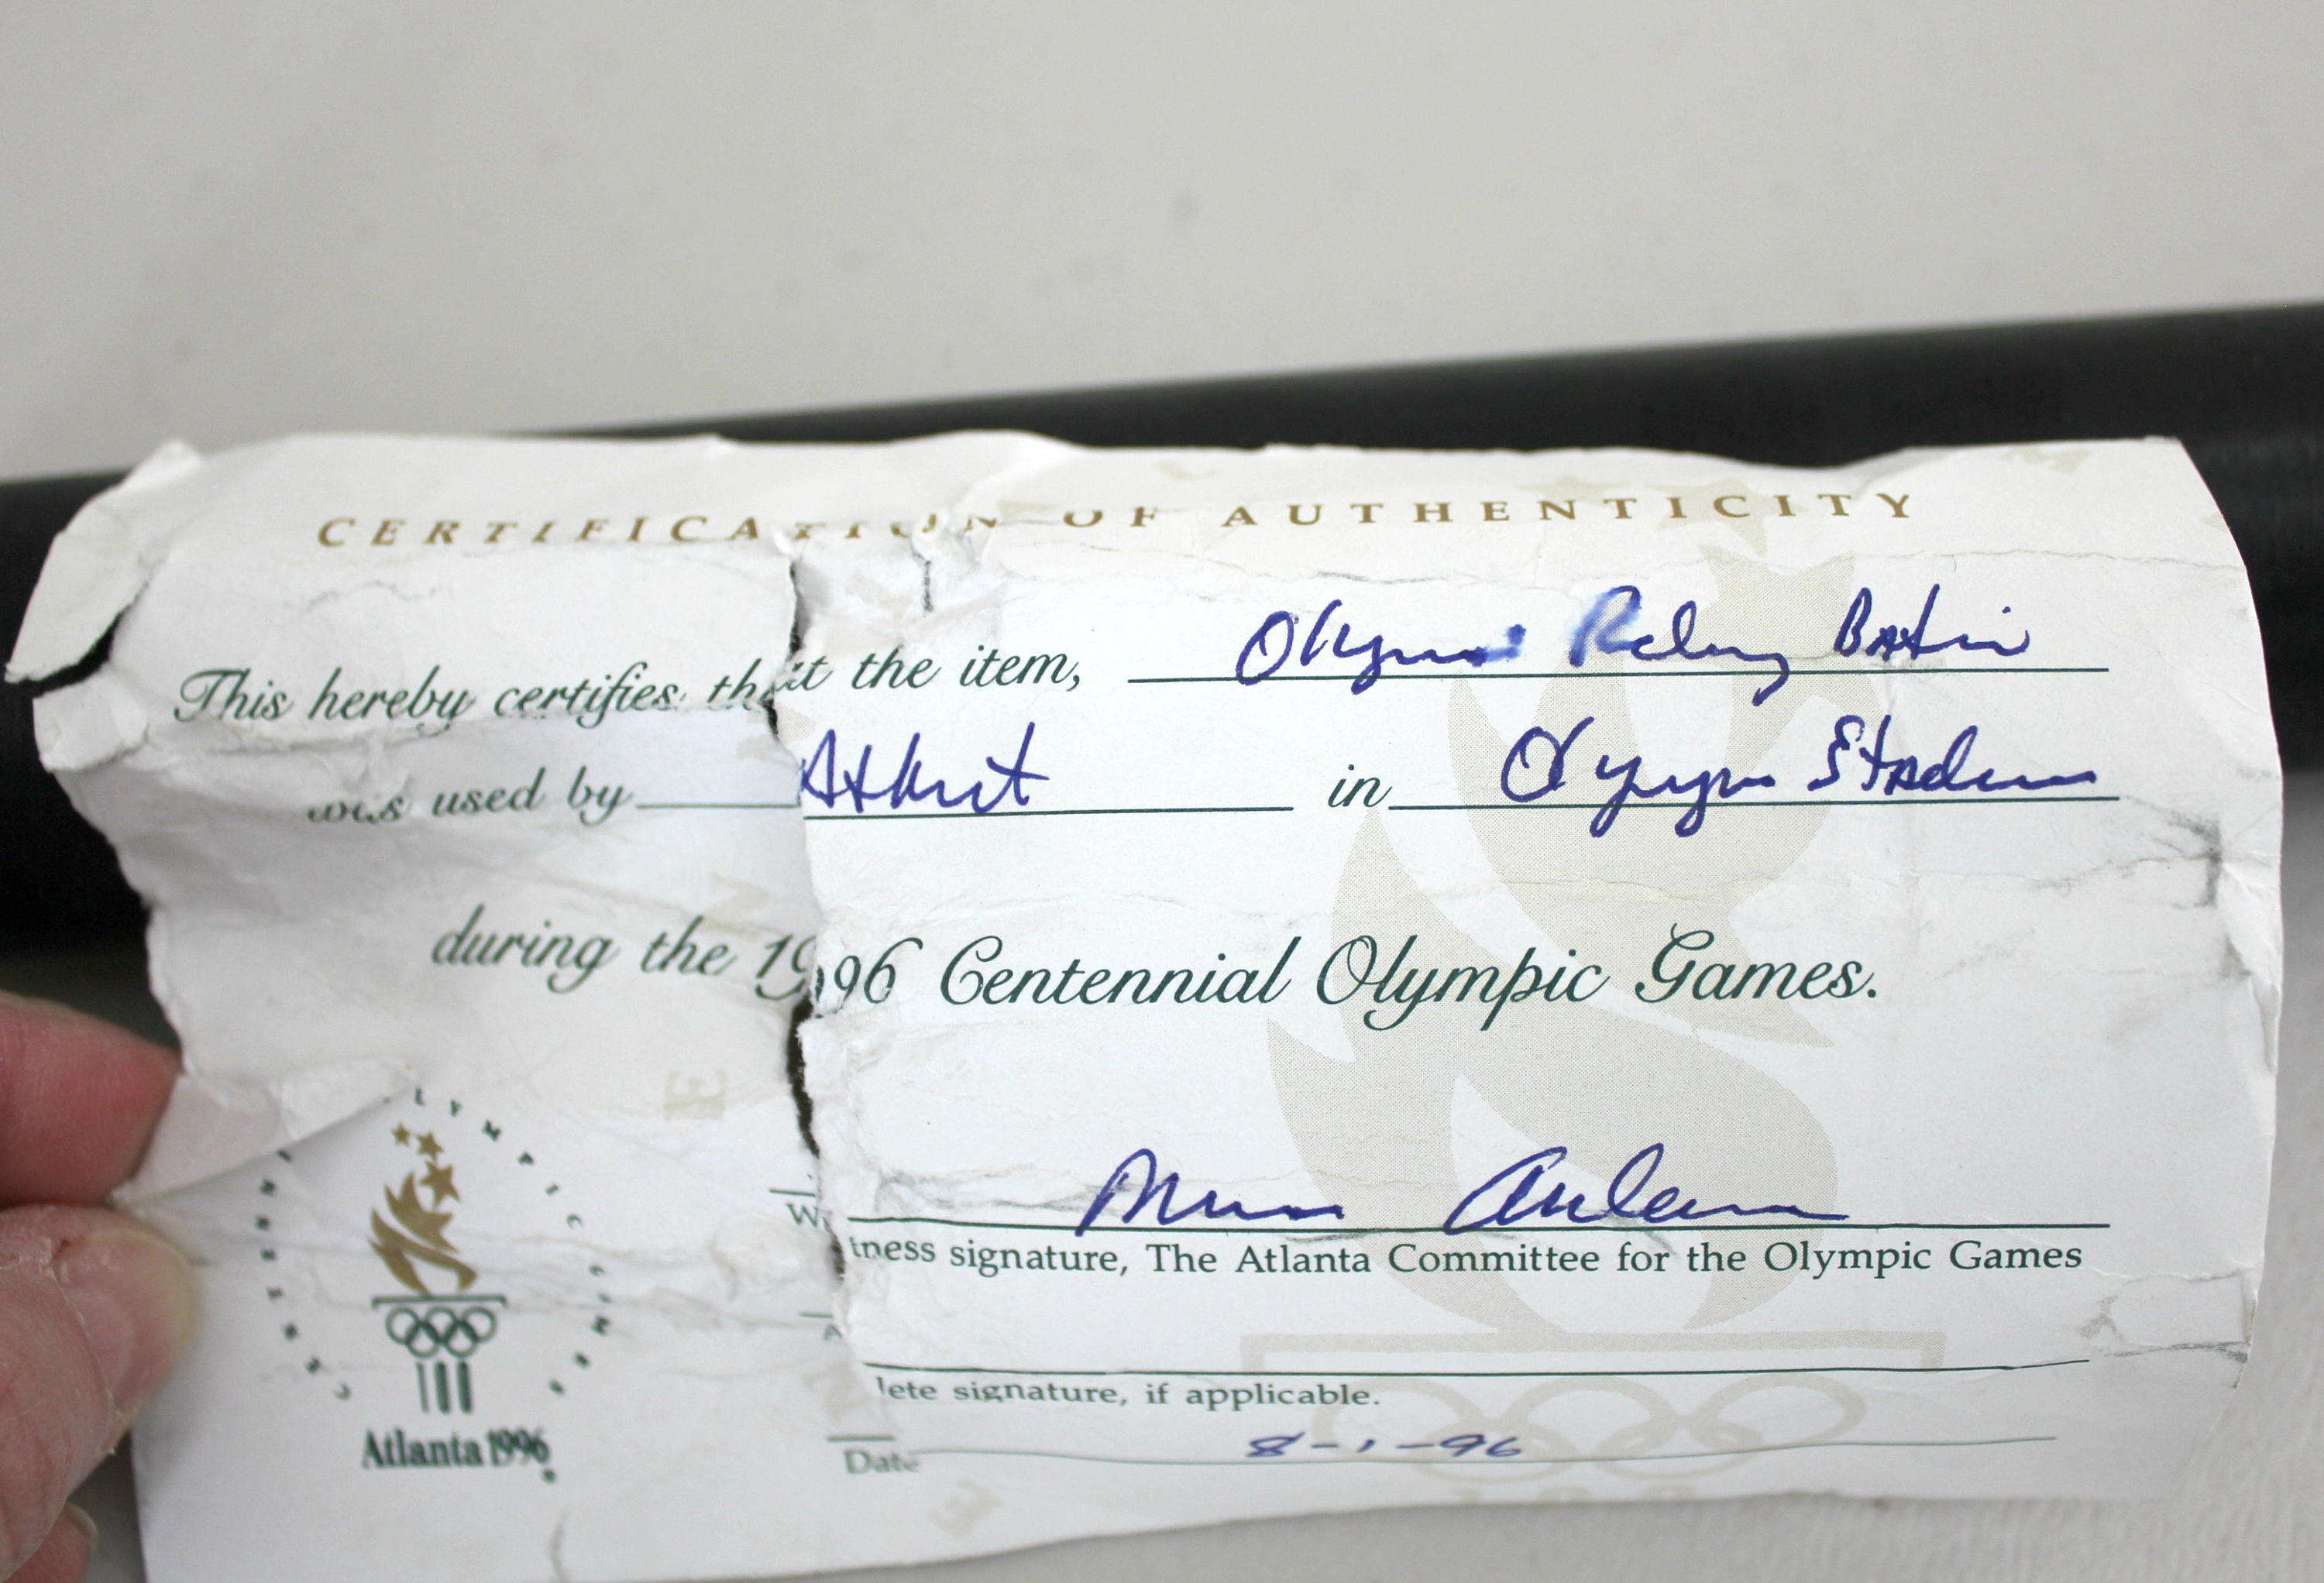 CERTIFICATION OF AUTHENTICITY
This hereby certifies that the item, Olympic Relay Baton
was used by Athlete in Olympic Stadium
during the 1996 Centennial Olympic Games.
Witness signature, The Atlanta Committee for the Olympic Games
lete signature, if applicable.
Date 8-1-96
Atlanta 1996